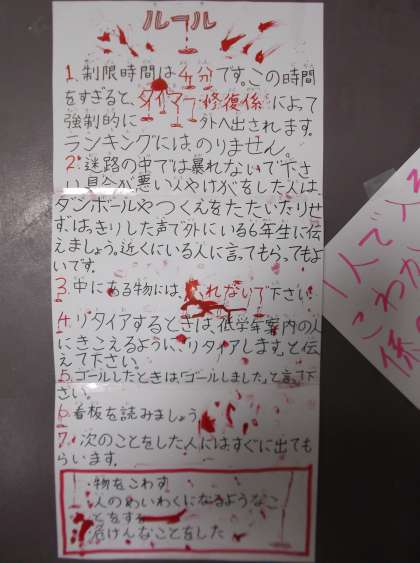 ルール
1.制限時間は4分です。この時間
をすぎると、タイマー修復係によって
強制的に 外へ出されます。
ランキングにはのりません。
2.迷路の中では暴れないで下さ
い。具合が悪い人やけがをした人は、
ダンボールやつくえをたたいたりせ
ず、はっきりした声で外にいる6年生に伝
えましょう。近くにいる人に言ってもらってもよ
いです。
3.中にある物には、ふれないで下さい
4.リタイアするときは、低学年案内の人
にきこえるように、リタイアします。と伝
えて下さい。
5.ゴールしたときは「ゴールしました」と言って下
さい。
6.看板を読みましょう
7.次のことをした人にはすぐに出ても
らいます。
・物をこわす
・人のめいわくになるようなこ
とをする
・危けんなことをした
1人で入
こわか
係の